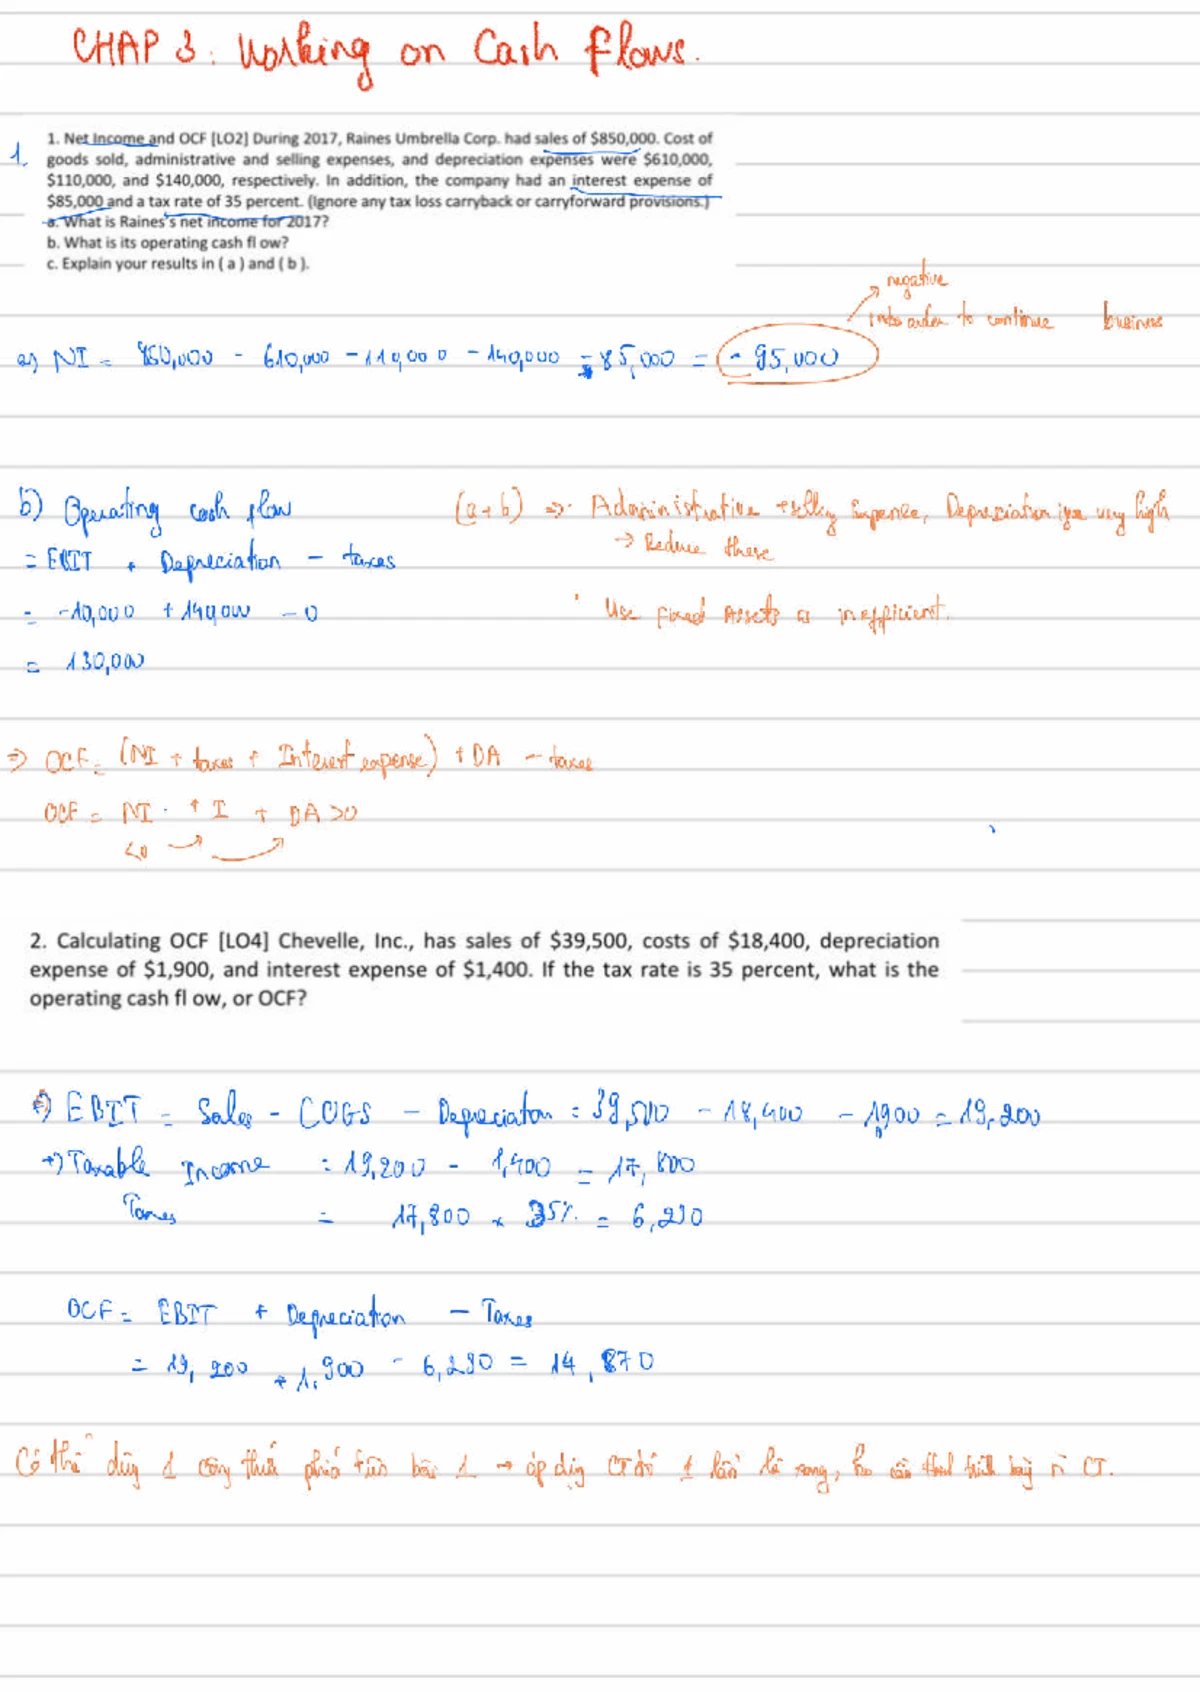 CHAP 3: Working on Cash Flows.
1. 1. Net Income and OCF [LO2] During 2017, Raines Umbrella Corp. had sales of $850,000. Cost of
goods sold, administrative and selling expenses, and depreciation expenses were $610,000,
$110,000, and $140,000, respectively. In addition, the company had an interest expense of
$85,000 and a tax rate of 35 percent. (Ignore any tax loss carryback or carryforward provisions.)
a. What is Raines's net income for 2017?
b. What is its operating cash fl ow?
c. Explain your results in ( a ) and ( b ).
negative
order to continue business
a) NI = 850,000 - 610,000 - 110,000 - 140,000 - 85,000 = - 95,000
b) Operating cash flow
= EBIT + Depreciation - taxes
= -10,000 + 140,000 - 0
= 130,000
(a+b) => Administrative + selling Expense, Depreciation very high
→ Reduce these
Use Fixed Assets is inefficient.
=> OCF = (NI + taxes + Interest expense) + DA - taxes
OCF = NI + I + DA >0
<0
2. Calculating OCF [LO4] Chevelle, Inc., has sales of $39,500, costs of $18,400, depreciation
expense of $1,900, and interest expense of $1,400. If the tax rate is 35 percent, what is the
operating cash fl ow, or OCF?
+) EBIT = Sales - COGS - Depreciation = 39,500 - 18,400 - 1,900 = 19,200
+) Taxable Income = 19,200 - 1,400 = 17,800
Taxes = 17,800 x 35% = 6,230
OCF = EBIT + Depreciation - Taxes
= 19,200 + 1,900 - 6,230 = 14,870
Có thể dùng 1 công thức bài 1 → áp dụng CT đó 1 lần là xong, CT.